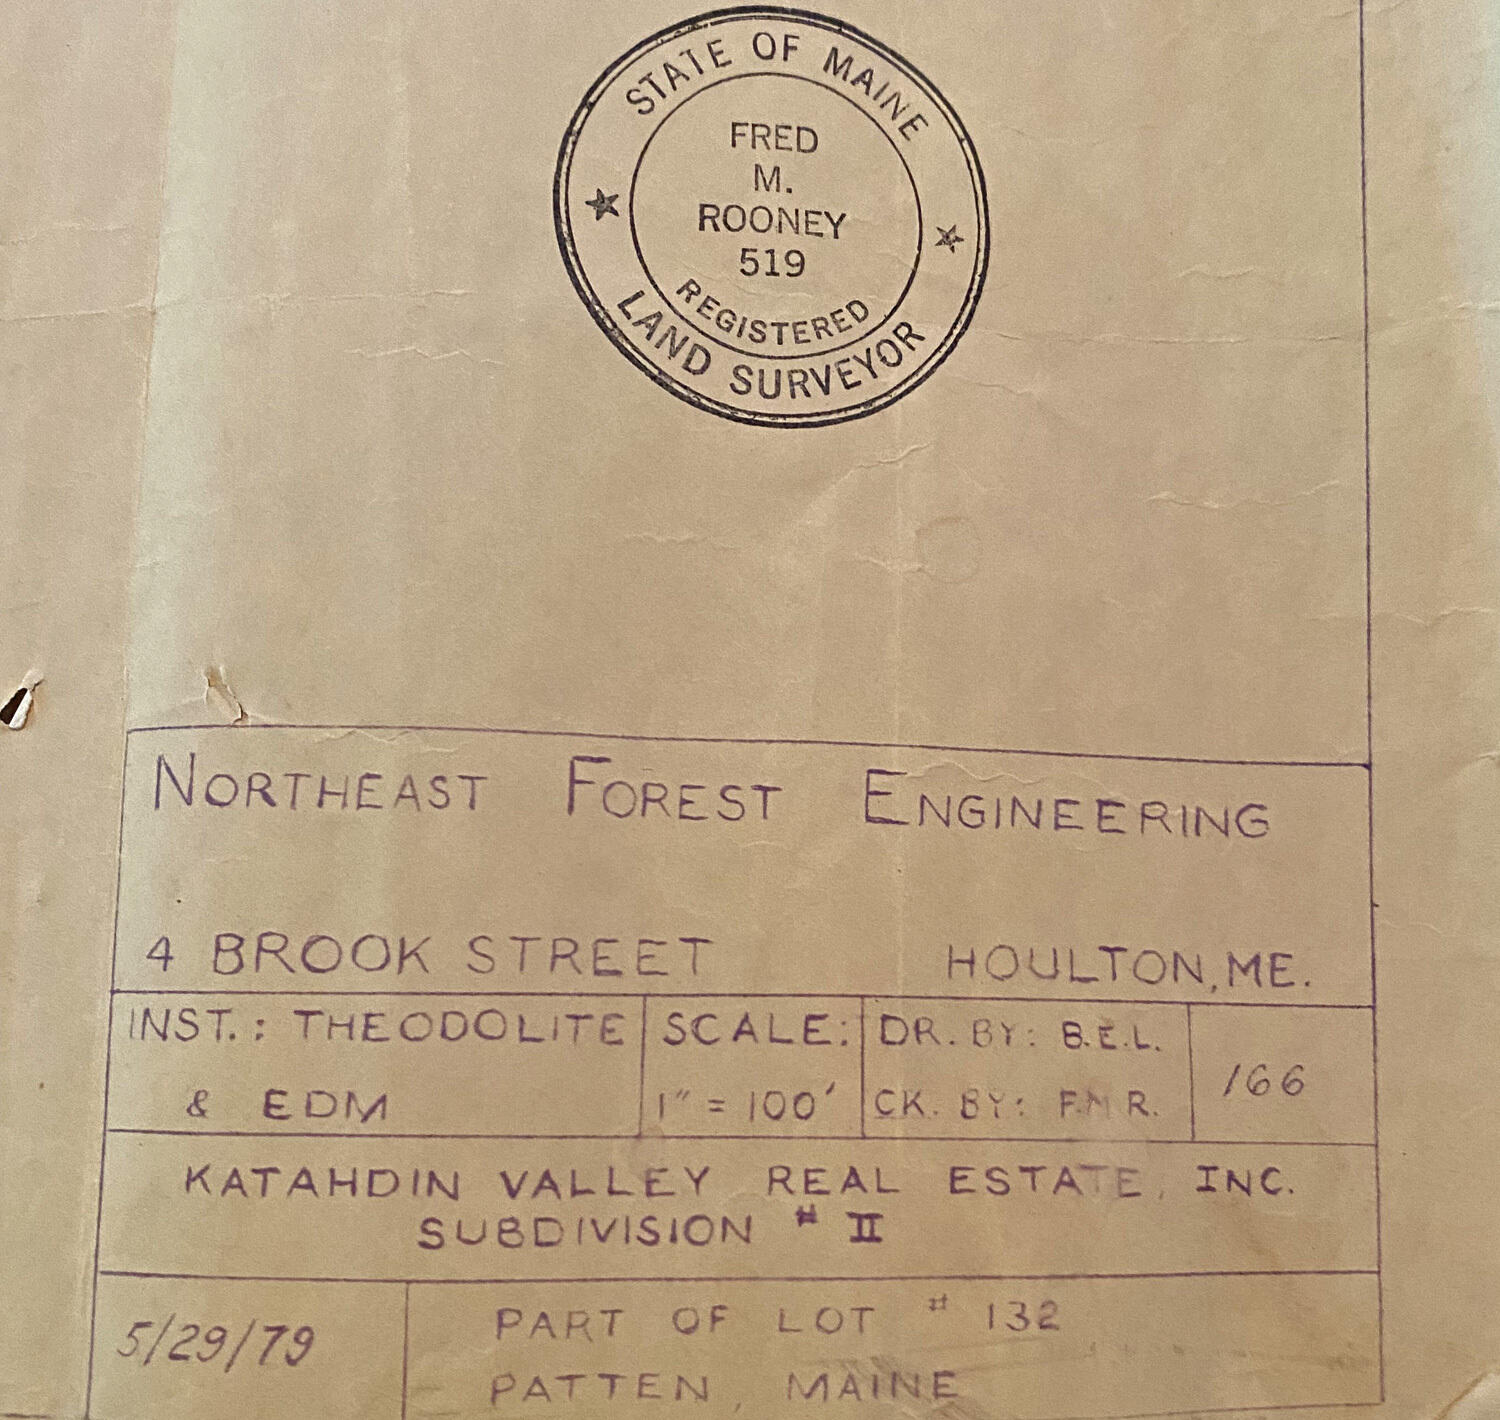 STATE OF MAINE
FRED
M.
ROONEY
519
REGISTERED
LAND SURVEYOR
NORTHEAST FOREST ENGINEERING
4 BROOK STREET HOULTON, ME.
INST.: THEODOLITE
& EDM
SCALE:
1" = 100'
DR. BY: B.E.L.
CK. BY: F.M.R.
166
KATAHDIN VALLEY REAL ESTATE, INC.
SUBDIVISION # II
5/29/79
PART OF LOT # 132
PATTEN, MAINE